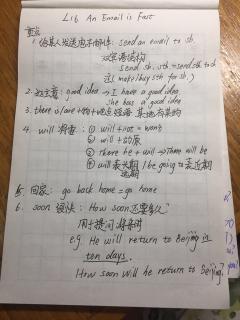 L16 An Email is Fast
重点
1. 给某人发送电子邮件: send an email to sb.
双宾语结构
send sb. sth = send sth to sb
(make/buy sth for sb.)
2. good idea → I have a good idea.
She has a good idea
3. there is/are +物+地点 某地有某物
4. will 将会: ① will + not = won't
② will + 动原
③ there be + will → There will be
④ will 表长期 / be going to 表近期
5. 回家: go back home = go home
6. soon 很快: How soon 还要多久?
用于提问 将来时
e.g He will return to Beijing in
ten days.
How soon will he return to Beijing?